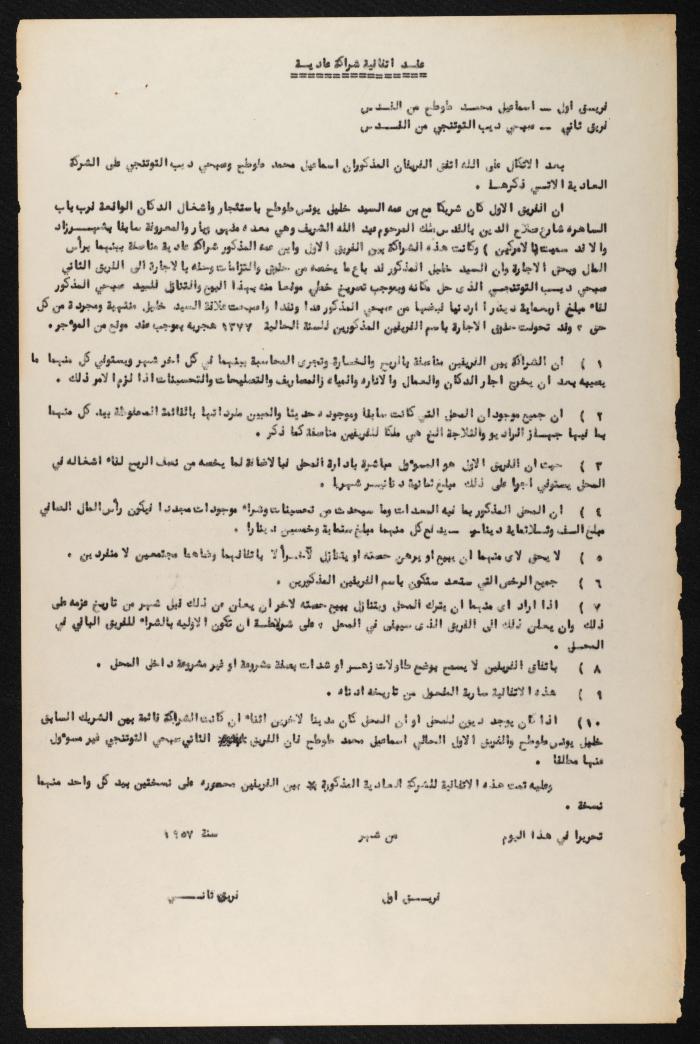 عقد اتفاقية شراكة عادية
فريق اول — اسماعيل محمد طوطح من القدس
فريق ثاني — صبحي ديب التوتنجي من القدس
بعد الاتكال على الله اتفق الفريقان المذكوران اسماعيل محمد طوطح وصبحي ديب التوتنجي على الشركة
العادية الاتي ذكرها .
ان الفريق الاول كان شريكا مع بن عمه السيد خليل يونس طوطح باستئجار واشغال الدكان الواقعة قرب باب
الساهره شارع صلاح الدين بالقدس ملك المرحوم عبد الله الشريف وهي معده مقهى وبار والمعروفة سابقا بشهرزاد
والا قد سميت ( الامركين ) وكانت هذه الشراكة بين الفريق الاول وابن عمه المذكور شراكة عادية مناصفة بينهما برأس
المال وبحق الاجارة وان السيد خليل المذكور قد باع ما يخصه من حقوق والتزامات وحقه بالاجارة الى الفريق الثاني
صبحي ديب التوتنجي الذي حل مكانه وبموجب تصريح خطي موقعا منه بهذا اليوم والتنازل للسيد صبحي المذكور
لقاء مبلغ اربعماية دينار اردنيا قبضها من صبحي المذكور عدا ونقدا واصبحت علاقة السيد خليل منتهية ومجردة من كل
حق ، وقد تحولت حقوق الاجارة باسم الفريقين المذكورين للسنة الحالية ١٣٧٧ هجريه بموجب عقد موقع من المؤجر .
١ ) ان الشراكة بين الفريقين مناصفة بالربح والخسارة وتجرى المحاسبة بينهما في كل اخر شهر ويستوفي كل منهما ما
يصيبه بعد ان يخرج اجار الدكان والعمال والاناره والمياه والمصاريف والتصليحات والتحسينات اذا لزم الامر ذلك .
٢ ) ان جميع موجودات المحل التي كانت سابقا وموجوده حديثا والمبين مفرداتها بالقائمة المحفوظة بيد كل منهما
بما فيها جهاز الراديو والثلاجة الخ هي ملكا للفريقين مناصفة كما ذكر .
٣ ) حيث ان الفريق الاول هو المسوول مباشرة بادارة المحل فبالاضافة لما يخصه من نصف الربح لقاء اشغاله في
المحل يستوفي اجرا على ذلك مبلغ ثمانية دنانير شهريا .
٤ ) ان المحل المذكور بما فيه المعدات وما سيحدث من تحسينات وشراء موجودات مجددا فيكون رأس المال الصافي
مبلغ الف وثلاثماية دينار سيدفع كل منهما مبلغ ستماية وخمسين دينارا .
٥ ) لا يحق لاى منهما ان يبيع او يرهن حصته او يتنازل لآخر الا باتفاقهما ورضاهما مجتمعين لا منفردين .
٦ ) جميع الرخص التي ستعد ستكون باسم الفريقين المذكورين .
٧ ) اذا اراد اى منهما ان يترك المحل ويتنازل ببيع حصته لاخر ان يعلن عن ذلك قبل شهر من تاريخ عزمه على
ذلك وان يعلن ذلك الى الفريق الذى سيبقى في المحل ، على شريطة ان تكون الاوليه بالشراء للفريق الباقي في
المحل .
٨ ) باتفاق الفريقين لا يسمح بوضع طاولات زهر او شدات بصفة مشروعة او غير مشروعة داخل المحل .
٩ ) هذه الاتفاقية سارية المفعول من تاريخه ادناه .
١٠) اذا كان يوجد ديون للمحل او ان المحل كان مدينا لاخرين اثناء ان كانت الشراكة قائمة بين الشريك السابق
خليل يونس طوطح والفريق الاول الحالي اسماعيل محمد طوطح فان الفريق الثاني صبحي التوتنجي غير مسوول
عنها مطلقا .
وعليه تمت هذه الاتفاقية للشركة العادية المذكورة بين الفريقين محرره على نسختين بيد كل واحد منهما
نسخة .
تحريرا في هذا اليوم من شهر سنة ١٩٥٧
فريق اول فريق ثاني